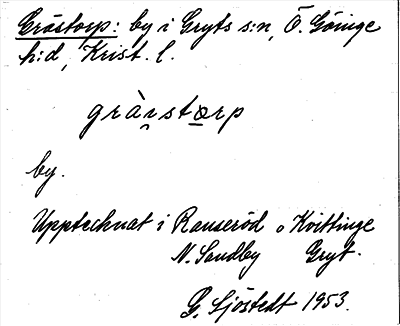 Gråstorp: by i Gryts s:n, Ö. Göinge
h:d, Krist. l.
gràı̯stᴔrp
by.
Upptecknat i Ranseröd o Kvittinge
N. Sandby Gryt.
G. Sjöstedt 1953.